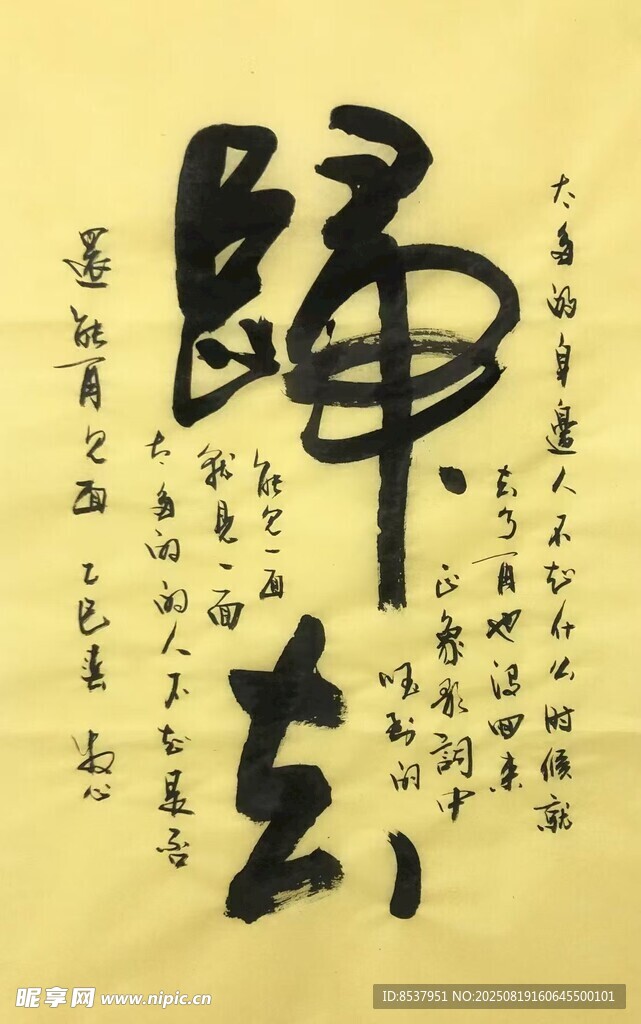 歸去
太多的身邊人不知什么时候就
去了再也没回来
正象歌詞中
唱到的
能见一面
就見一面
太多的的人不知是否
還能再见面 乙巳春
昵享网 www.nipic.cn
ID:8537951 NO:20250819160645500101